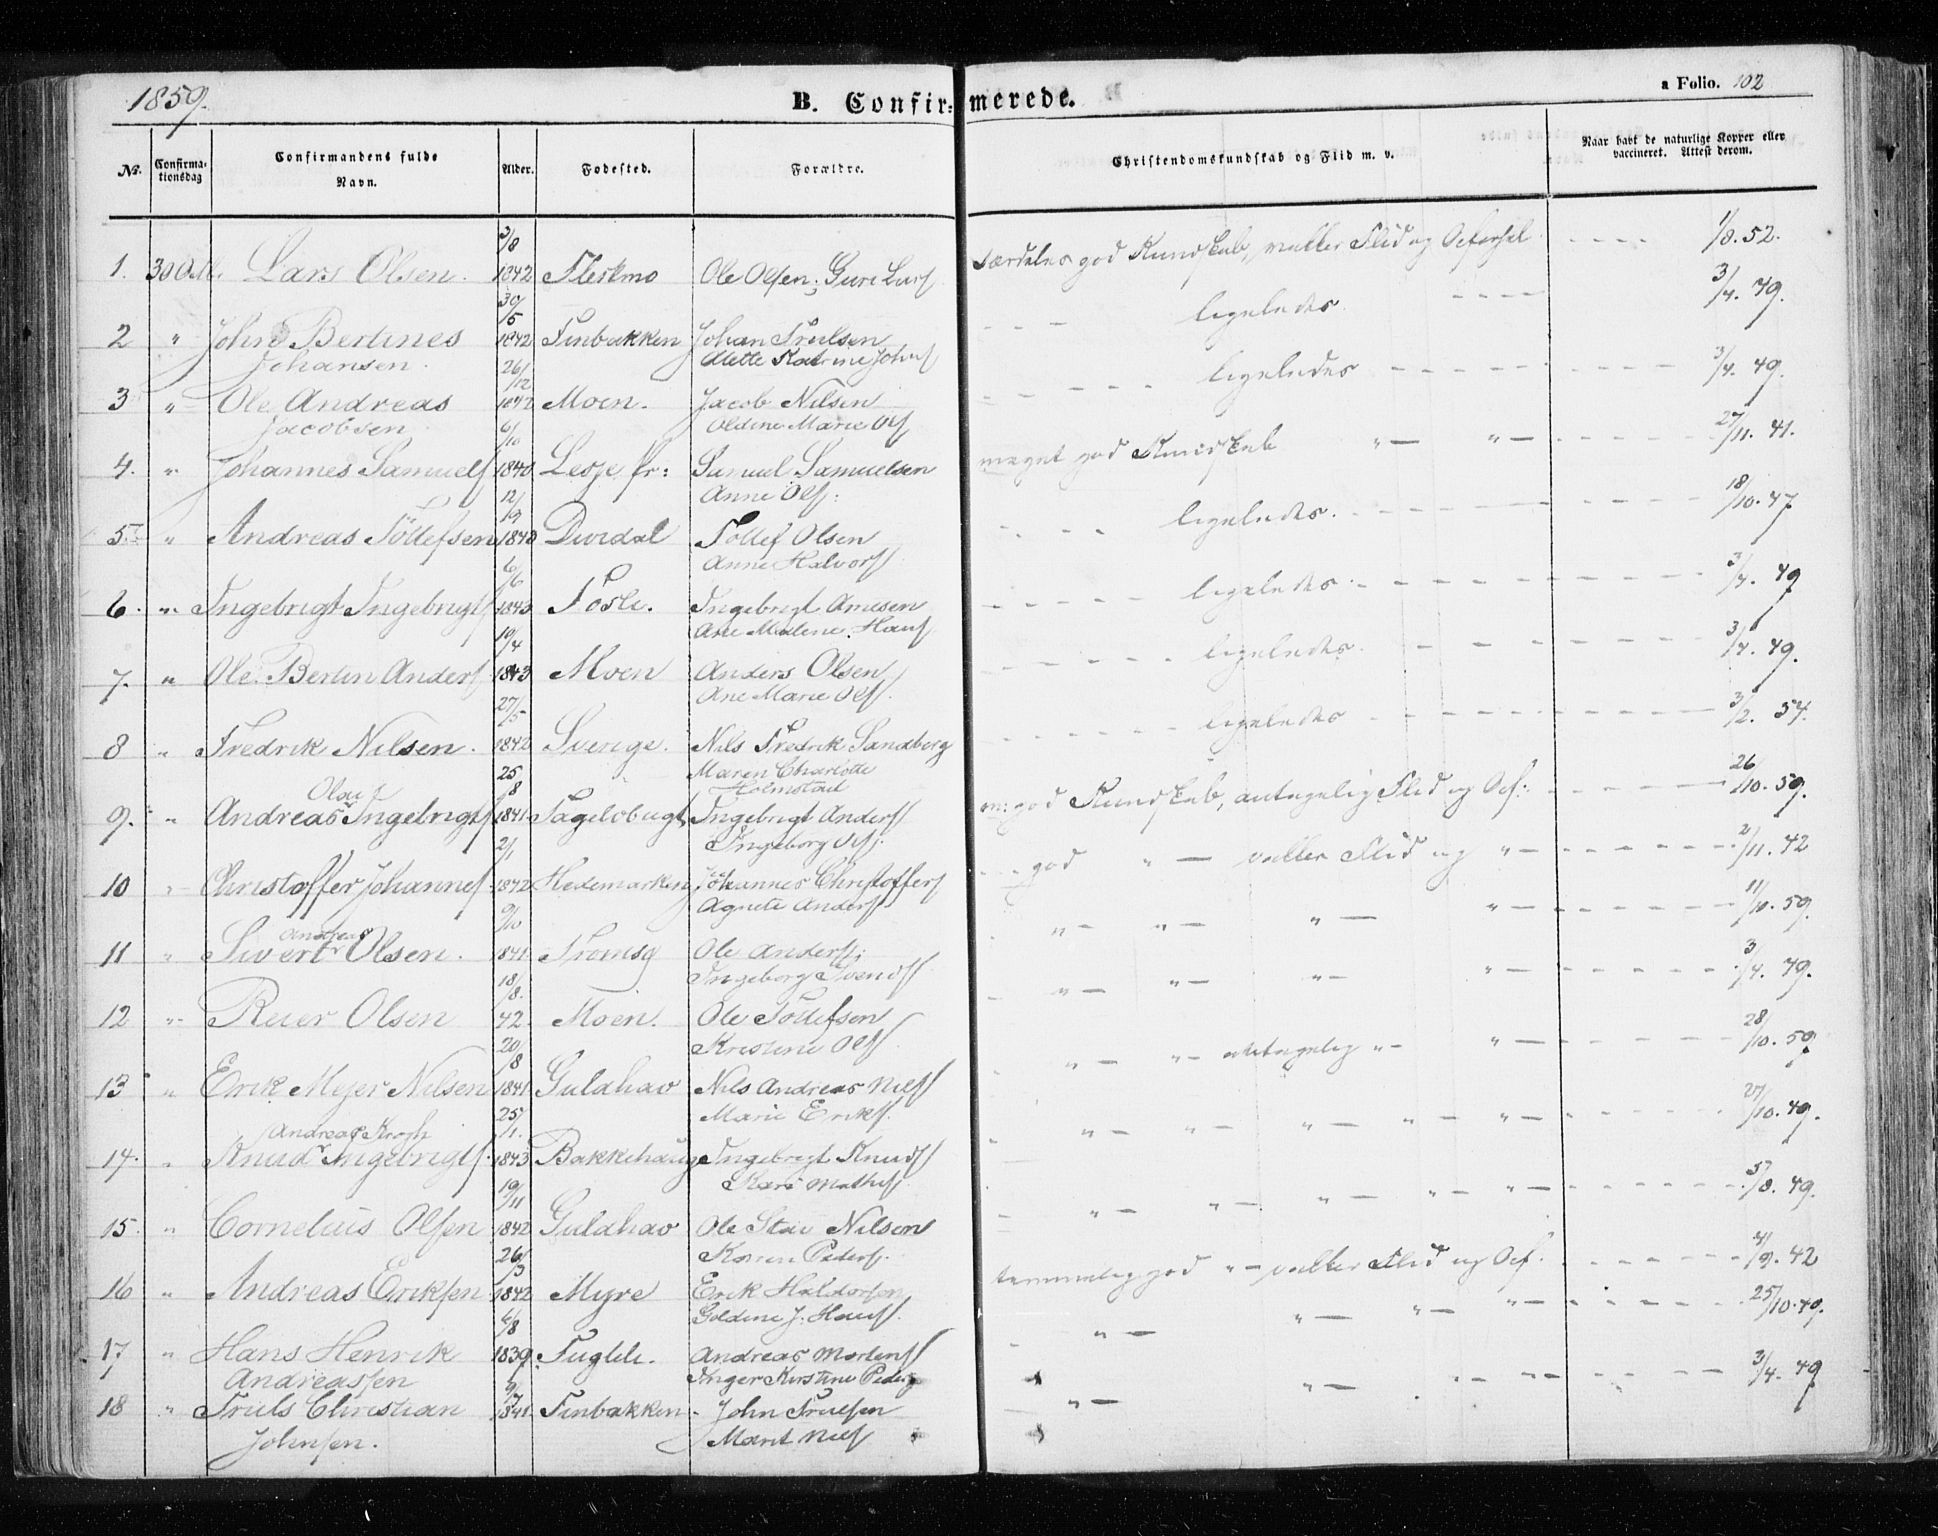 1859.
B. Confirmerede.
a Folio. 102
No.
Confirmationsdag
Confirmandens fulde Navn.
Alder.
Fodested.
Forældre.
Christendomskundskab og Flid m. v.
Naar havt de naturlige Kopper eller vaccineret. Attest derom.
1. 30 Lars Olsen. 3/8 1842 Ole Olsen; Lars særdeles god Kundskab, Flid og 1/8. 52.
2 " John Bertines Johansen. 30/5 1842 Finbakken Johan Trulsen ligeledes. 3/4. 49.
3 " Ole Andreas Jacobsen 26/12 1842 Moen. Jacob Nilsen Oldine Marie Ols ligeledes 3/4. 49.
4. " Johannes Samuels 6/10 1840 Lesje Pr: Samuel Samuelsen Anne Ols: meget god Kundskab " " 27/11. 41.
5 " Andreas Tollefsen 12/9 Divedal Tollef Olsen Anne Halvors ligeledes. 18/10. 47
6. " Ingebrigt Ingebrigts 6/6 1843 Fosli. Ingebrigt Arnesen Ane Malene Hans ligeledes 3/4. 49
7. " Ole Bertin Anders 19/4 1843 Moen Anders Olsen Ane Marie Ols. ligeledes. 3/4. 49.
8 " Fredrik Nilsen. 27/5 1842 Sverige. Nils Fredrik Sandberg Maren Charlotte Holmstad ligeledes 3/2. 54.
9. " Andreas Olau Ingebrigts 25/8 1841 Ingebrigt Anders Ingeborg Ols. m: god Kundskab, antagelig Flid og Opf: 26/10. 59.
10 " Christoffer Johannes 2/1 1842 Hedemarken Johannes Christoffers Agnete Anders god " Flid og " 2/11. 42
11 " Sivert Andreas Olsen. 9/10 1841 Tromsø Ole Anders; Ingeborg Svends " " " " 11/10. 59.
12 " Reier Olsen 18/8. 42 Moen. Ole Tollefsen Kristine Ols " " " " 3/4. 49.
13 " Erik Mejer Nilsen 20/8 1841 Guldhav Nils Andreas Nils Marie Eriks. " " antagelig " " 28/10. 59
14. " Knud Andreas Krogh Ingebrigts. 25/1. 1843 Bakkehaug Ingebrigt Knuds Kari Mathis " " " " " 27/10. 49.
15 " Cornelius Olsen 19/11 1842 Guldhav Ole Nilsen Karen Peders. " " " " " 5/8. 49.
16 " Andreas Eriksen 26/3 1842 Myre Erik Haldorsen Goldine J. Hans. temmelig god " Flid og Opf. 4/9. 42
17 " Hans Henrik Andreassen 6/8 1839 Fugleli. Andreas Mortens Inger Kirstine Peders " " " " 25/10. 49.
18 " Truls Christian Johnsen. 9/7 1841 Finbakken John Trulsen Marit Nils " " " " 3/4. 49